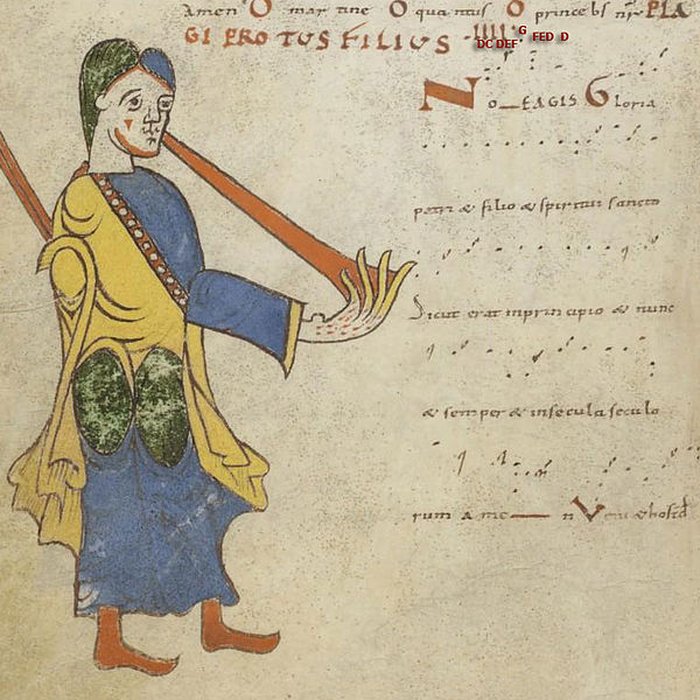 amen O mar tine O quantus O princebs nr̄ PLA
GI PROTUS FILIUS IIII G FED D
DC DEF
No_EAGIS Gloria
patri & filio & spiritui sancto
Sicut erat in principio & nunc
& semper & insecula seculo
rum a me n